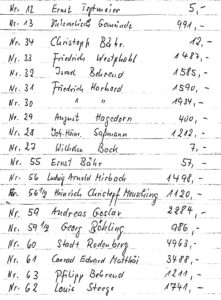 Nr. 12 Ernst Teptmeier 5,-
Nr. 13 Gemeinde 991,-
Nr. 34 Christoph Bähr. 12,-
Nr. 33 Friedrich Westphohl 1487,-
Nr. 32 Israel Behrend 1585,-
Nr. 31 Friedrich Harhard 1590,-
Nr. 30 " " 1934,-
Nr. 29 August Hagedorn 400,-
Nr. 28 Joh. Heinr. Saßmann 1212,-
Nr. 27 Wilhelm Bock 7,-
Nr. 55 Ernst Bähr 57,-
Nr. 56 Ludwig Arnold Mirbach 1498,-
Nr. 56 1/2 Heinrich Christoph Meusching 1120,-
Nr. 59 Andreas Goslar 2284,-
Nr. 59 1/2 Georg Böhling 986,-
Nr. 60 Stadt Rodenberg 4963,-
Nr. 61 Conrad Eduard Matthäi 3488,-
Nr. 63 Philipp Behrend 1211,-
Nr. 62 Louis Steege 1741,-